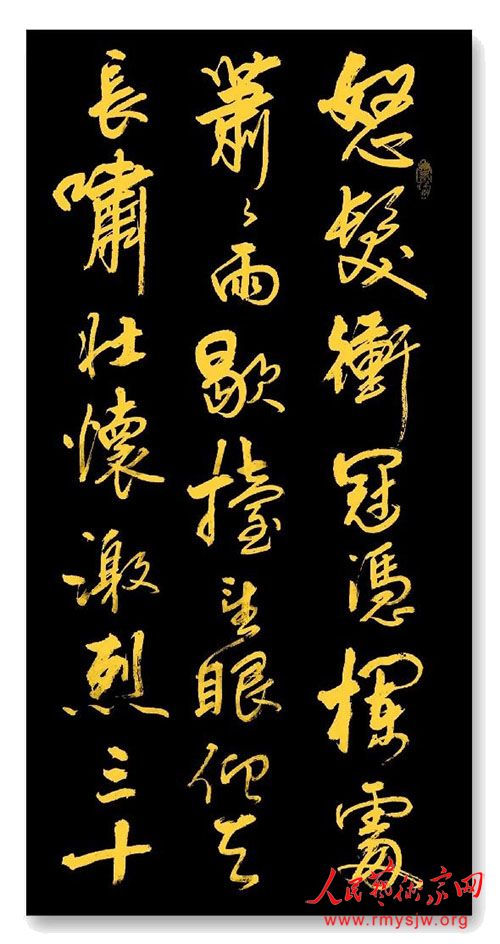 怒髮衝冠憑欄處
蕭々雨歇擡望眼仰天
長嘯壯懷激烈三十
人民藝術家网
www.rmysjw.org